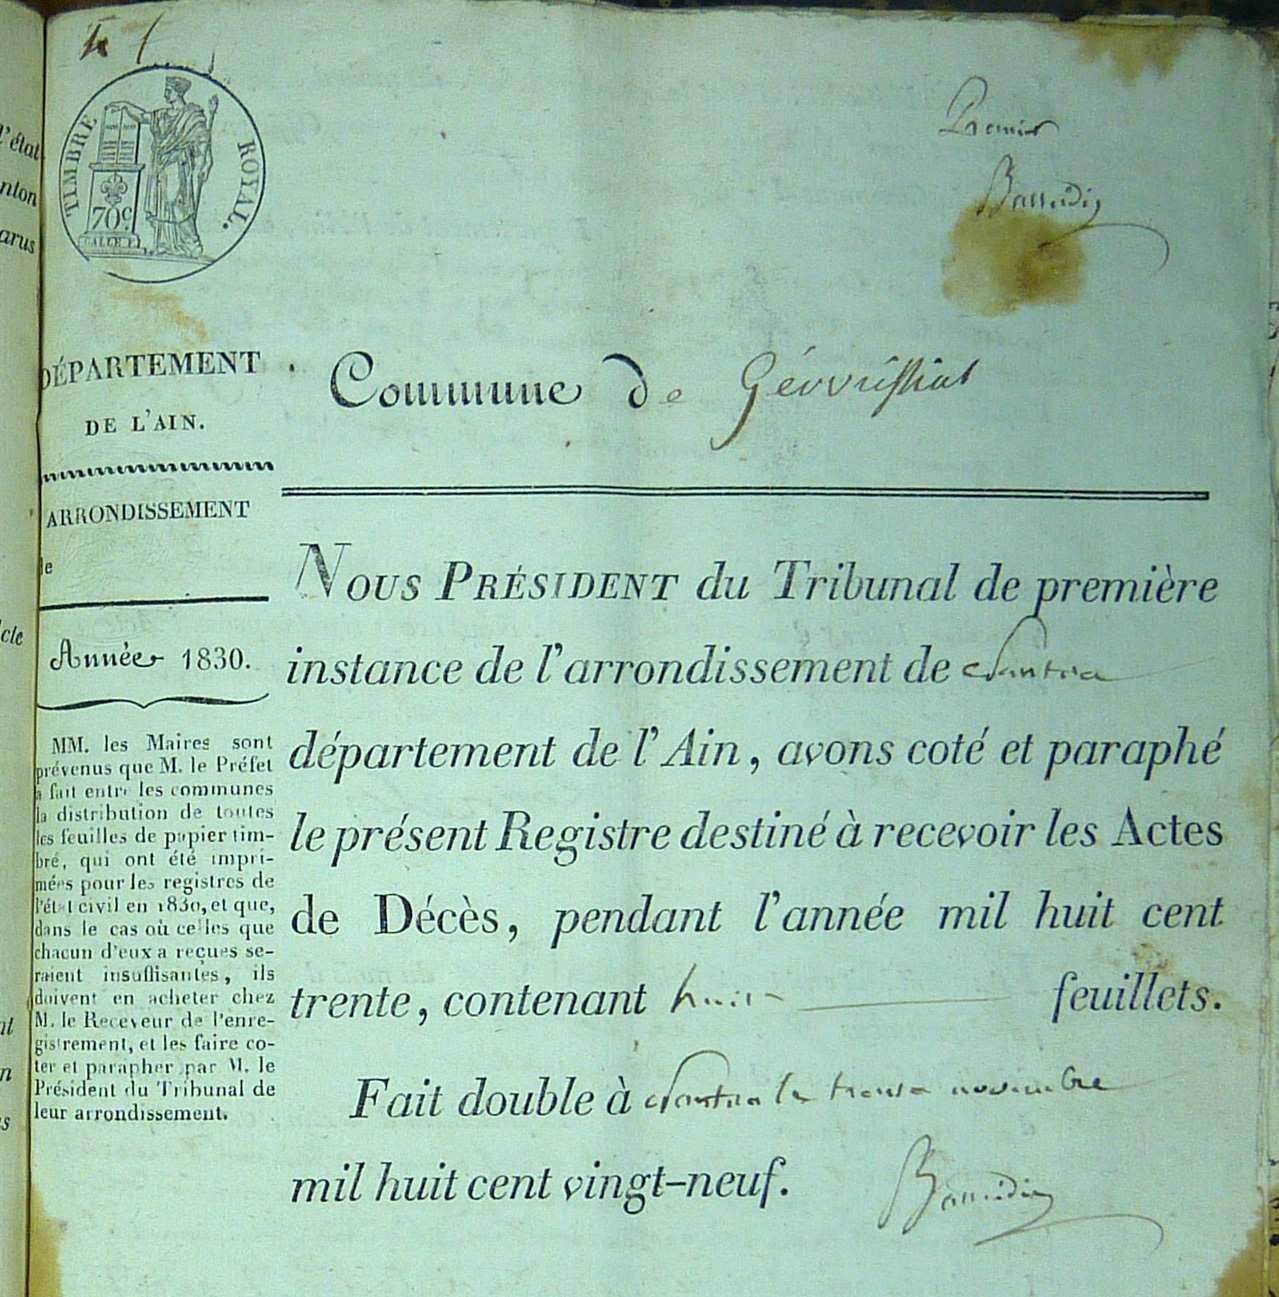 TIMBRE ROYAL.
70c
Premier
DÉPARTEMENT
DE L'AIN.
Commune de
ARRONDISSEMENT
de
Année 1830.
MM. les Maires sont
prévenus que M. le Préfet
a fait entre les communes
la distribution de toutes
les feuilles de papier tim-
bré, qui ont été impri-
mées pour les registres de
l'état civil en 1830, et que,
dans le cas où celles que
chacun d'eux a reçues se-
raient insuffisantes, ils
doivent en acheter chez
M. le Receveur de l'enre-
gistrement, et les faire co-
ter et parapher par M. le
Président du Tribunal de
leur arrondissement.
NOUS PRÉSIDENT du Tribunal de première
instance de l'arrondissement de Nantua
département de l'Ain, avons coté et paraphé
le présent Registre destiné à recevoir les Actes
de Décès, pendant l'année mil huit cent
trente, contenant huit feuillets.
Fait double à Nantua le novembre
mil huit cent vingt-neuf.